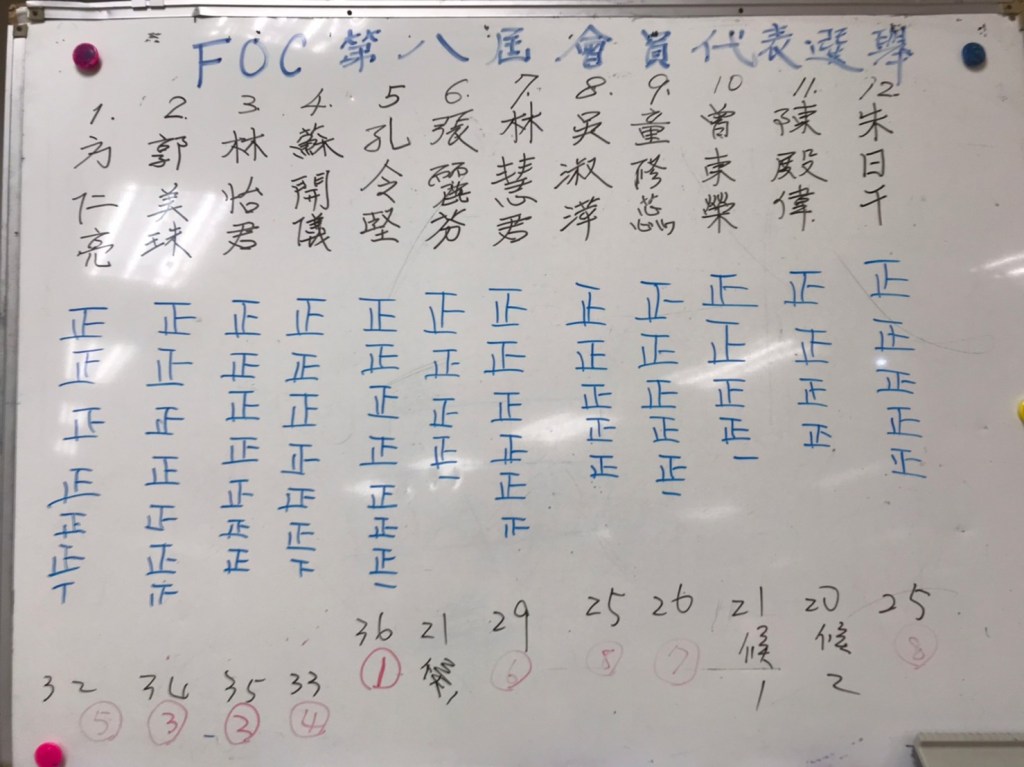 FOC第八屆會員代表選舉
1. 方仁亮
2. 郭美珠
3. 林怡君
4. 蘇開儀
5 孔令堅
6. 張麗芬
7. 林慧君
8. 吳淑萍
9. 童修蕊
10 曾東榮
11. 陳殿偉
12. 朱日千
正正正正正正丅
正正正正正正
正正正正正正正
正正正正正正下
正正正正正正正一
正正正正一
正正正正正
正正正正正
正正正正正一
正正正正一
正正正正
正正正正正
32
⑤
34
③
35
33
④
36
①
21
29
⑥
25
⑧
26
⑦
21
候
1
20
候
2
25
⑧